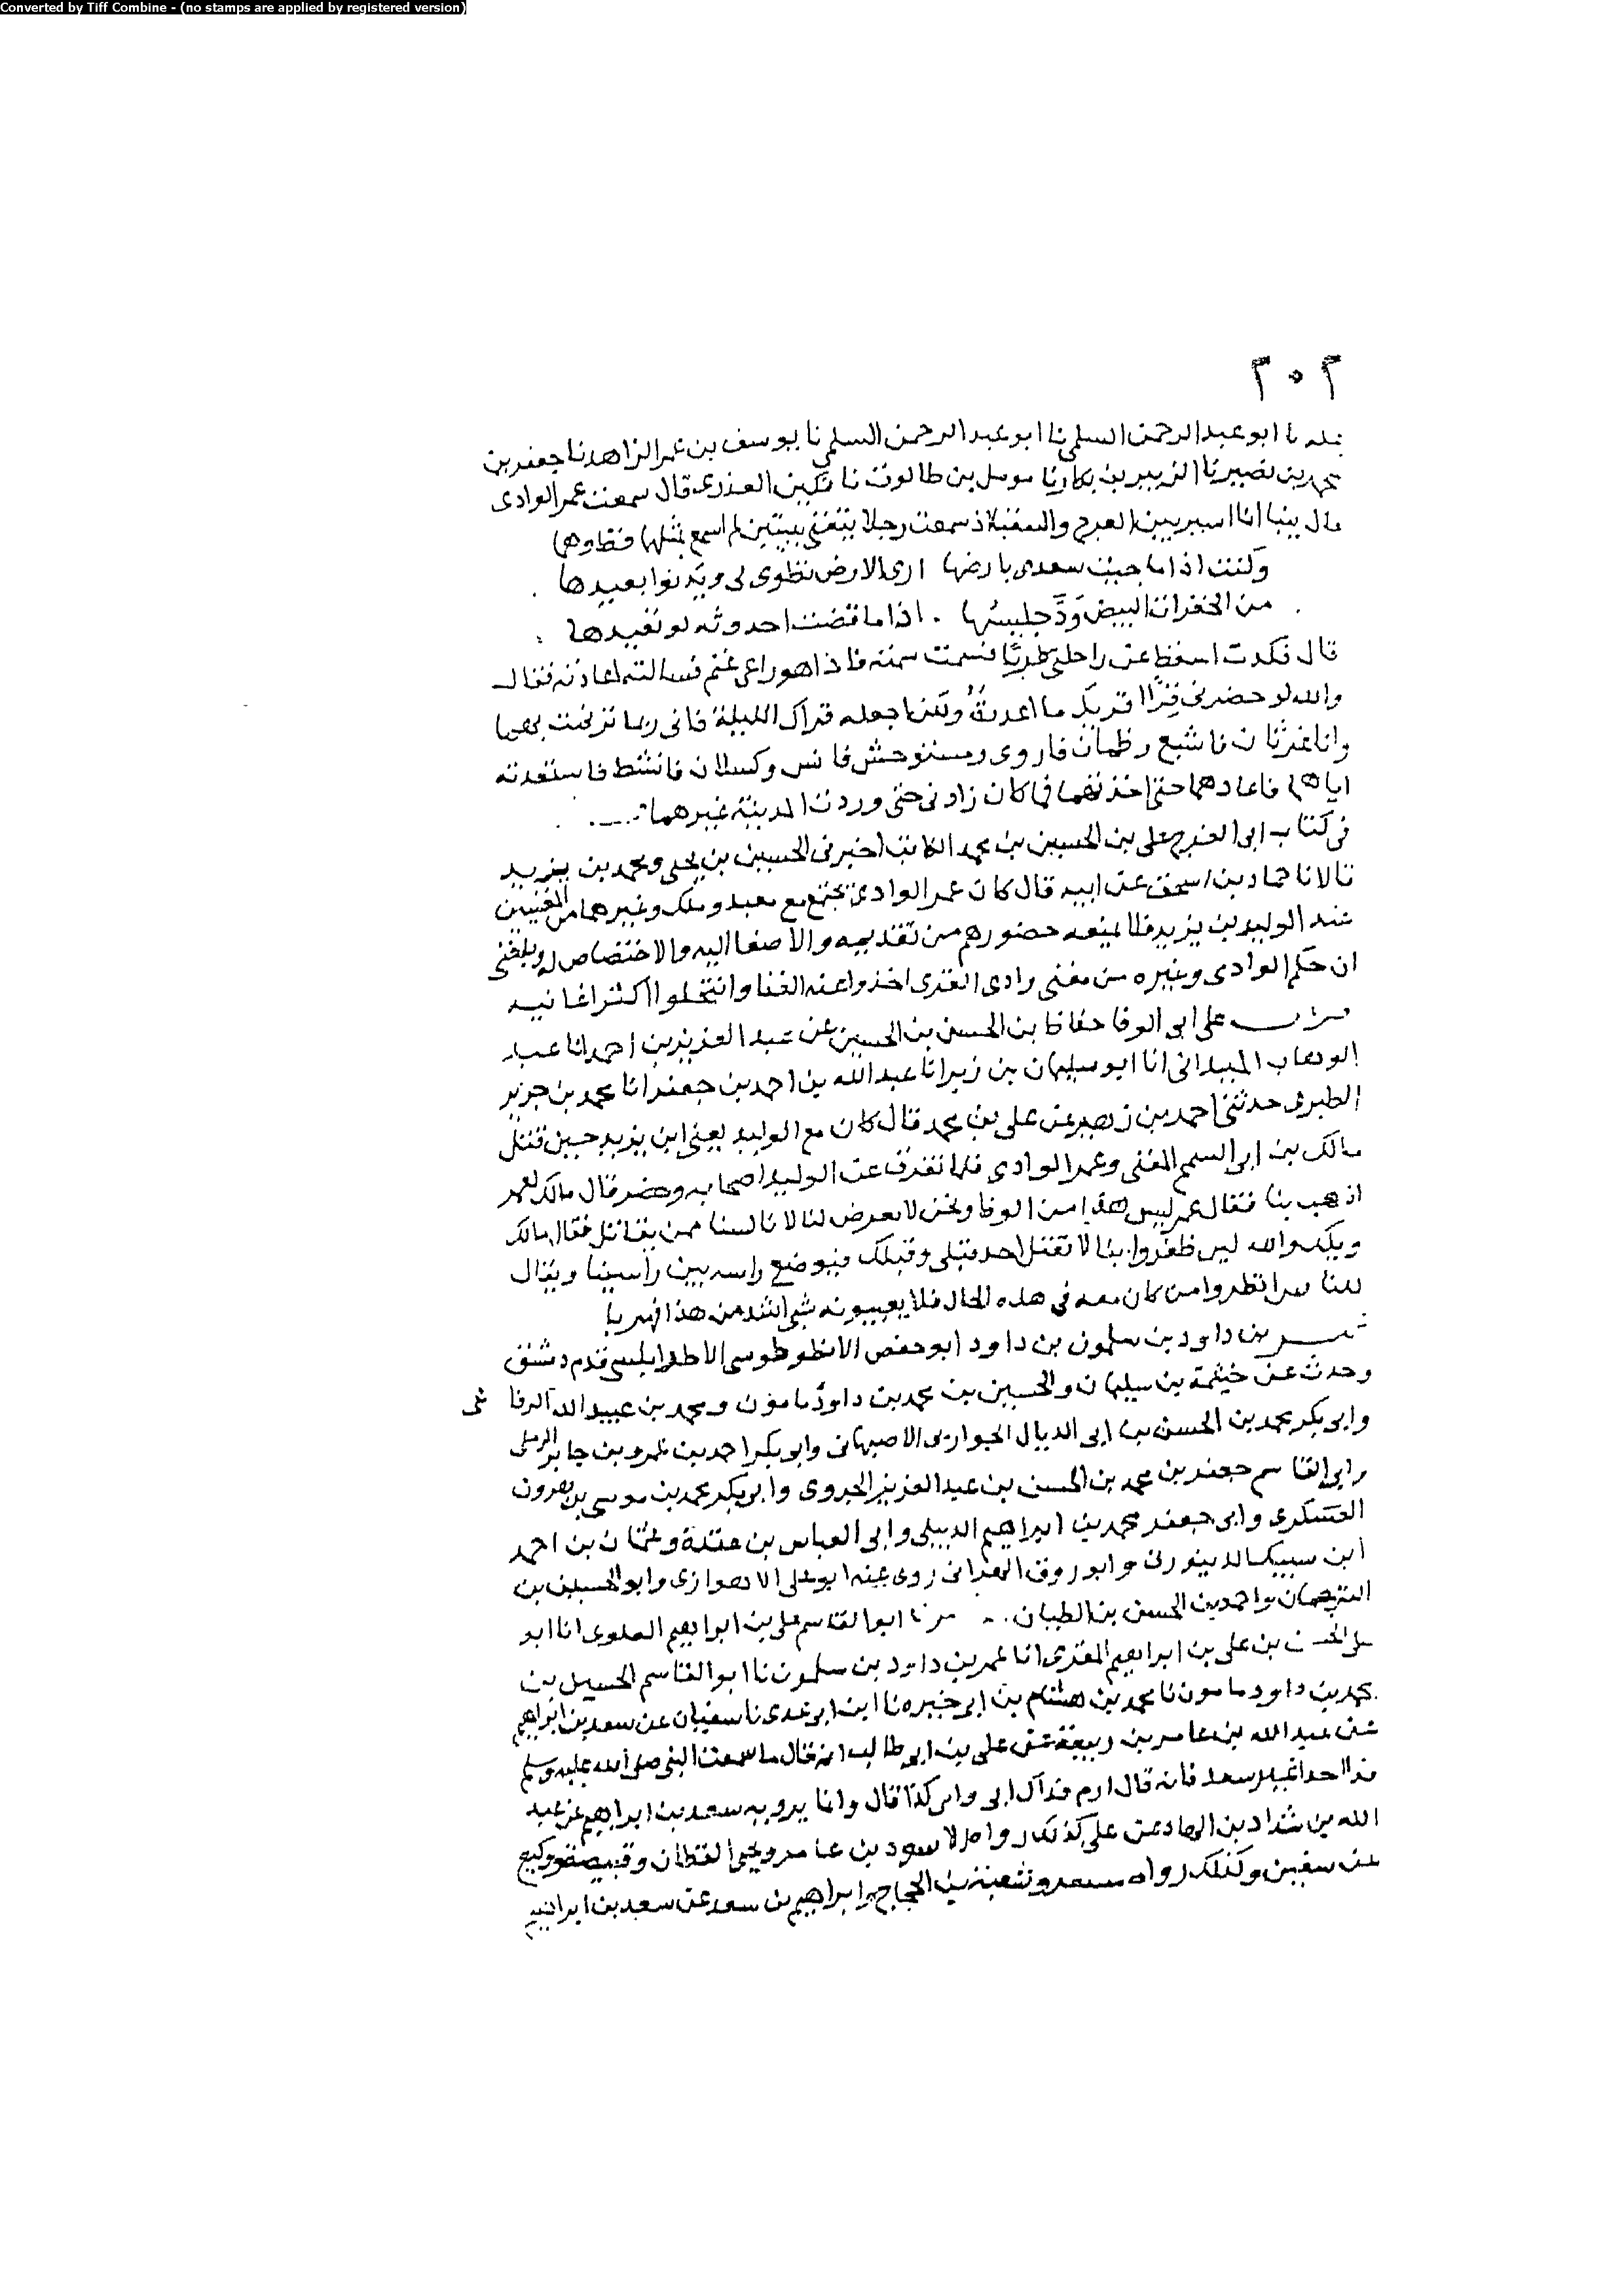 Converted by Tiff Combine - (no stamps are applied by registered version)
٣٠٢
انا ابو عبد الرحمن السلمي نا ابو عبد الرحمن السلمي نا يوسف بن عمر الزاهد نا جعفر بن
محمد بن نصير نا الزبير بن بكار نا مومل بن طالوت نا مكين العذري قال سمعت عمر الوادي
قال بينا انا اسير بين العرج والسقيا اذ سمعت رجلا يتغنى ببيتين لم اسمع بمثلهما قط وهما
وكنت اذا ما جيت سعدى بارضها ارى الارض تطوى لي ويدنوا بعيدها
من الخفرات البيض ودّ جليسها . اذا ما قضت احدوثه لو تعيدها
قال فكدت اسقط عن راحلتي طربا فسمت سمته فاذا هو راعي غنم فسالته اعادته فقال
والله لو حضرني قرًا اقريك ما اعدته ولكن اجعله قراك الليلة فاني ربما ترنمت بهما
وانا غرثان فاشبع وظمآن فاروى ومستوحش فانس وكسلان فانشط فاستعدته
اياهما فاعادهما حتى اخذتهما فما كان زادي حتى وردت المدينة غيرهما
في كتاب ابي الفرج علي بن الحسين بن محمد الكاتب اخبرني الحسين بن يحيى ومحمد بن يزيد
قالا نا حماد بن اسحق عن ابيه قال كان عمر الوادي يجتمع مع معبد وملك وغيرهما من المغنيين
عند الوليد بن يزيد فلا يمنعه حضورهم من تقديمه والاصغا اليه والاختصاص له وبلغني
ان حكم الوادي وغيره من مغني وادي القرى اخذوا عنه الغنا وانتحلوا اكثر اغانيه
علي ابي الوفا حفاظ بن الحسن بن الحسين عن عبد العزيز بن احمد انا عبد
الوهاب الميداني انا ابو سليمان بن زبر انا عبد الله بن احمد بن جعفر انا محمد بن جرير
الطبري حدثني احمد بن زهير عن علي بن محمد قال كان مع الوليد يعني ابن يزيد حين قتل
مالك بن ابي السمح المغني وعمر الوادي فلما تفرق عن الوليد اصحابه وحصر قال مالك لعمر
اذهب بنا فقال عمر ليس هذا من الوفا ونحن لا يعرض لنا لانا لسنا ممن يقاتل فقال مالك
ويلك والله لين ظفروا بنا لا يقتل احد قبلي وقبلك فيوضع راسه بين راسينا ويقال
للناس انظروا من كان معه في هذه الحال فلا يعيبونه بشي اشد من هذا فهربا
بن داود بن سلمون بن داود ابو حفص الانطرطوسي الاطرابلسي قدم دمشق
وحدث عن خيثمة بن سليمان والحسين بن محمد بن داود مامون ومحمد بن عبيد الله الرفا
وابي بكر محمد بن الحسن بن ابي الذيال الاصبهاني وابو بكر احمد بن عمرو بن جابر الرملي
وابي القاسم جعفر بن محمد بن الحسن بن عبد العزيز الجروي وابو بكر محمد بن موسى بن هرون
العسكري وابي جعفر محمد بن ابراهيم الديبلي وابي العباس بن عقدة وعثمان بن احمد
ابن سبيك الدينوري وابو روق الهزاني روى عنه ابو علي الاهوازي وابو الحسين بن
الترجمان واحمد بن الحسن بن الطيان .. ابو القاسم علي بن ابراهيم العلوي انا ابو
علي الحسن بن علي بن ابراهيم المقري انا عمر بن داود بن سلمون نا ابو القاسم الحسين بن
محمد بن داود مامون نا محمد بن هشام بن ابي خيره نا ابن ابي عدي نا سفيان عن سعد بن ابراهيم
عن عبد الله بن عامر بن ربيعة عن علي بن ابي طالب انه قال ما سمعت النبي صلى الله عليه وسلم
فدا احدا غير سعد فانه قال ارم فداك ابي وامي كذا قال وانما يرويه سعد بن ابراهيم عن عبد
الله بن شداد بن الهاد عن علي كذلك رواه الاسود بن عامر ويحيى القطان وقبيصة ووكيع
عن سفين وكذلك رواه مسعر وشعبة بن الحجاج وابراهيم بن سعد عن سعد بن ابراهيم